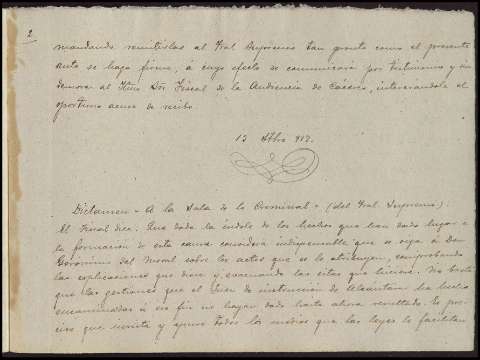 2
mandando remitirlas al Tral Supremo tan pronto como el presente
auto se haga firme, á cuyo efecto se comunicará por testimonio y sin
demora al Iltmo Sor Fiscal de la Audiencia de Cáceres, interesandole el
oportuno acuse de recibo.
13 917.
Dictamen - A la Sala de lo Criminal - (del Tral Supremo).
El Fiscal dice: Que dada la índole de los hechos que han dado lugar a
la formacion de esta causa considera indispensable que se oiga á Don
Gerónimo del Moral sobre los actos que se le atribuyen, comprobando
las esplicaciones que diere y evacuando las citas que hiciera. No basta
que las gestiones que el Juez de instrucción de Alcántara ha hecho
encaminadas á ese fin no hayan dado hasta ahora resultado. Es pre-
ciso que insista y apure todos los medios que las leyes le facilitan